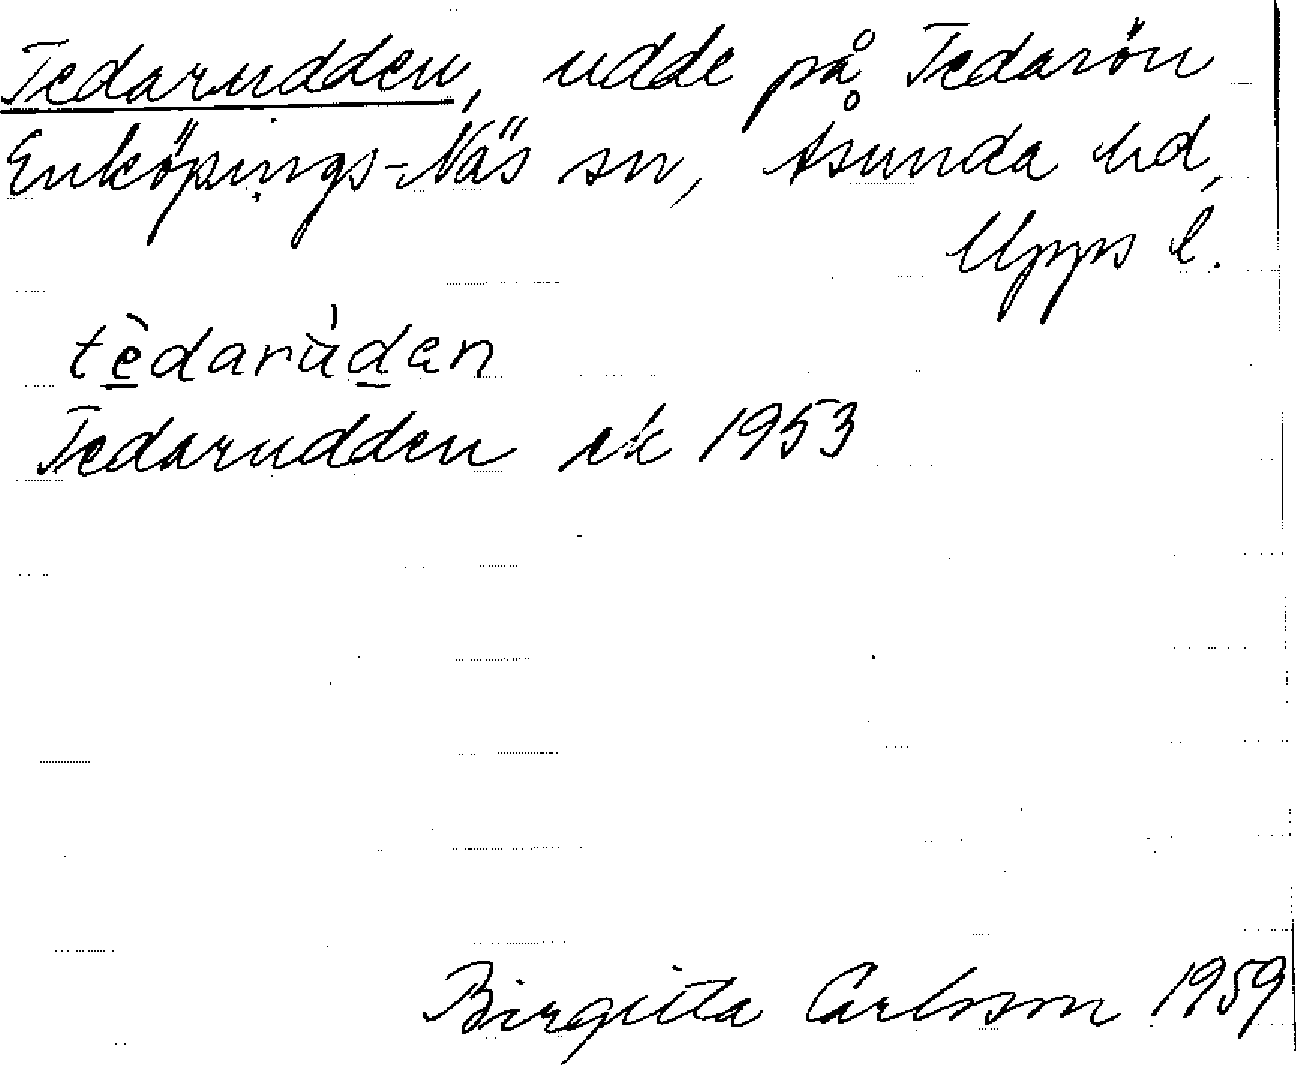 Tedarudden, udde på Tedarön
Enköpings-Näs sn, Åsunda hd,
Upps l.
tèdarùdan
Tedarudden ek 1953
Birgitta Carlsson 1959